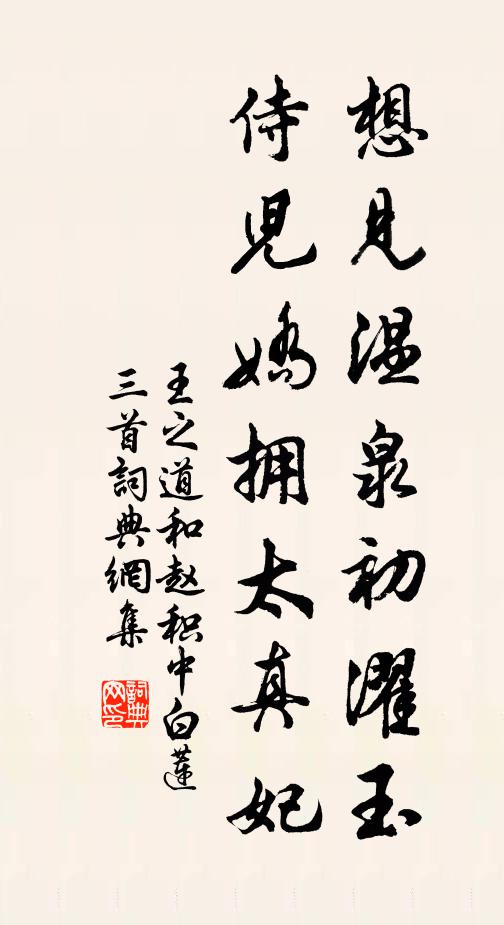 想见温泉初濯玉
侍児嬌拥太真妃
王之道和赵积中白莲
三首詞典網集
詞典
网印